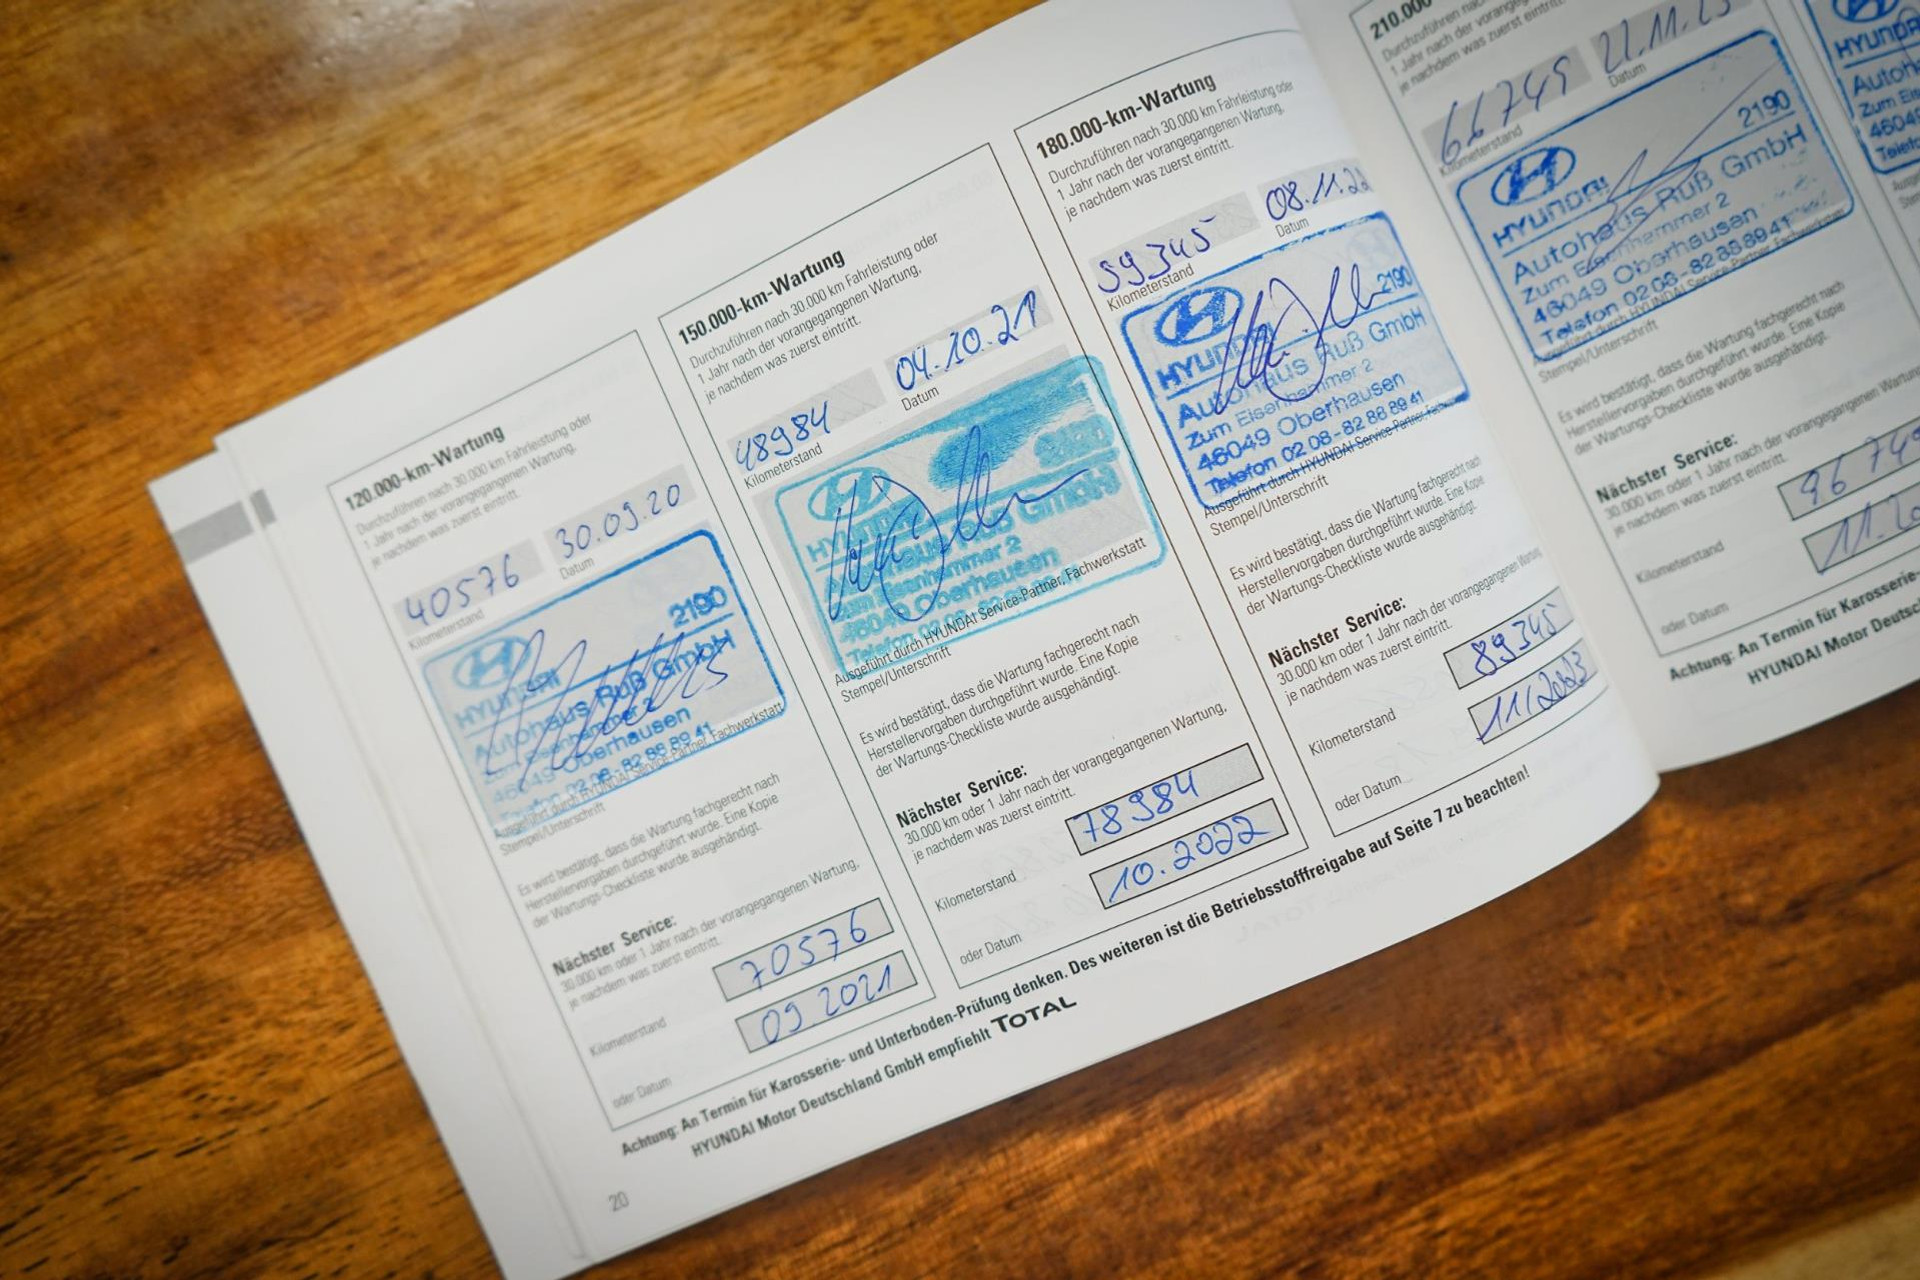 120.000-km-Wartung
Durchzuführen nach 30.000 km Fahrleistung oder
1 Jahr nach der vorangegangenen Wartung,
je nachdem was zuerst eintritt.
40576 30.09.20
Kilometerstand Datum
HYUNDAI 2190
Autohaus Ruß GmbH
Zum Eisenhammer 2
46049 Oberhausen
Telefon 02 08 - 82 88 89 41
Ausgeführt durch HYUNDAI Service-Partner, Fachwerkstatt
Stempel/Unterschrift
Es wird bestätigt, dass die Wartung fachgerecht nach
Herstellervorgaben durchgeführt wurde. Eine Kopie
der Wartungs-Checkliste wurde ausgehändigt.
Nächster Service:
30.000 km oder 1 Jahr nach der vorangegangenen Wartung,
je nachdem was zuerst eintritt.
Kilometerstand 70576
oder Datum 09.2021
150.000-km-Wartung
Durchzuführen nach 30.000 km Fahrleistung oder
1 Jahr nach der vorangegangenen Wartung,
je nachdem was zuerst eintritt.
48984 04.10.21
Kilometerstand Datum
HYUNDAI 2190
Autohaus Ruß GmbH
Zum Eisenhammer 2
46049 Oberhausen
Telefon 02 08
Ausgeführt durch HYUNDAI Service-Partner, Fachwerkstatt
Stempel/Unterschrift
Es wird bestätigt, dass die Wartung fachgerecht nach
Herstellervorgaben durchgeführt wurde. Eine Kopie
der Wartungs-Checkliste wurde ausgehändigt.
Nächster Service:
30.000 km oder 1 Jahr nach der vorangegangenen Wartung,
je nachdem was zuerst eintritt.
Kilometerstand 78984
oder Datum 10.2022
180.000-km-Wartung
Durchzuführen nach 30.000 km Fahrleistung oder
1 Jahr nach der vorangegangenen Wartung,
je nachdem was zuerst eintritt.
59345 08.11.22
Kilometerstand Datum
HYUNDAI 2190
Autohaus Ruß GmbH
Zum Eisenhammer 2
46049 Oberhausen
Telefon 02 08 - 82 88 89 41
Ausgeführt durch HYUNDAI Service-Partner, Fachwerkstatt
Stempel/Unterschrift
Es wird bestätigt, dass die Wartung fachgerecht nach
Herstellervorgaben durchgeführt wurde. Eine Kopie
der Wartungs-Checkliste wurde ausgehändigt.
Nächster Service:
30.000 km oder 1 Jahr nach der vorangegangenen Wartung,
je nachdem was zuerst eintritt.
Kilometerstand 89345
oder Datum 11/2023
Achtung: An Termin für Karosserie- und Unterboden-Prüfung denken. Des weiteren ist die Betriebsstofffreigabe auf Seite 7 zu beachten!
HYUNDAI Motor Deutschland GmbH empfiehlt TOTAL
20
210.000
Durchzuführen nach
1 Jahr nach der vorangegangenen
je nachdem was zuerst eintritt.
66749 22.11.23
Kilometerstand Datum
HYUNDAI 2190
Autohaus Ruß GmbH
Zum Eisenhammer 2
46049 Oberhausen
Telefon 02 08 - 82 88 89 41
Ausgeführt durch HYUNDAI Service-Partner, Fachwerkstatt
Stempel/Unterschrift
Es wird bestätigt, dass die Wartung fachgerecht nach
Herstellervorgaben durchgeführt wurde. Eine Kopie
der Wartungs-Checkliste wurde ausgehändigt.
Nächster Service:
30.000 km oder 1 Jahr nach der vorangegangenen Wartung,
je nachdem was zuerst eintritt.
Kilometerstand 96749
oder Datum 11.20
Achtung: An Termin für Karosserie-
HYUNDAI Motor Deutsc
HYUNDAI
Autoh
Zum Eise
46049
Telefo